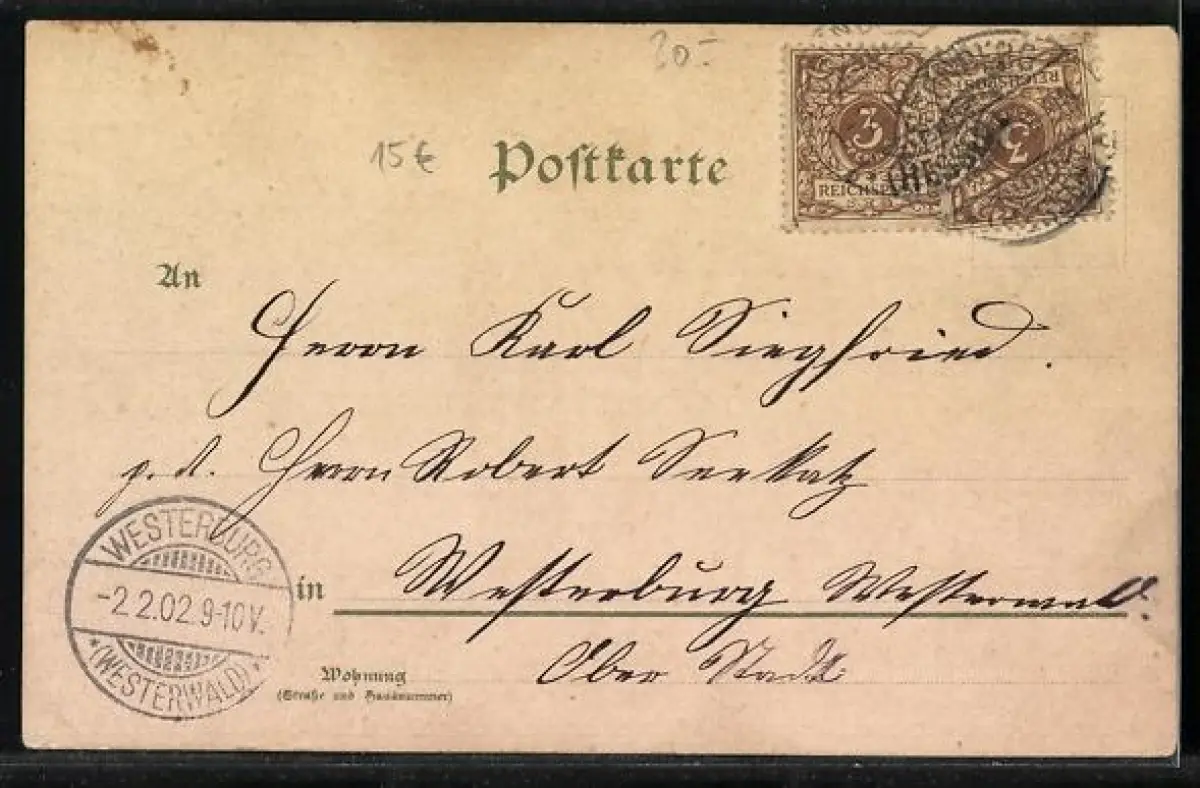 30.-
15€
Postkarte
3
REICHSPOST
3
(HESSEN)
An
Herrn Karl Siegfried.
p. A. Herrn Robert Seekatz
in Westerburg Westerwald.
Ober Stadt
Wohnung
(Straße und Hausnummer)
WESTERBURG
-2.2.02.9-10V.
*(WESTERWALD)*